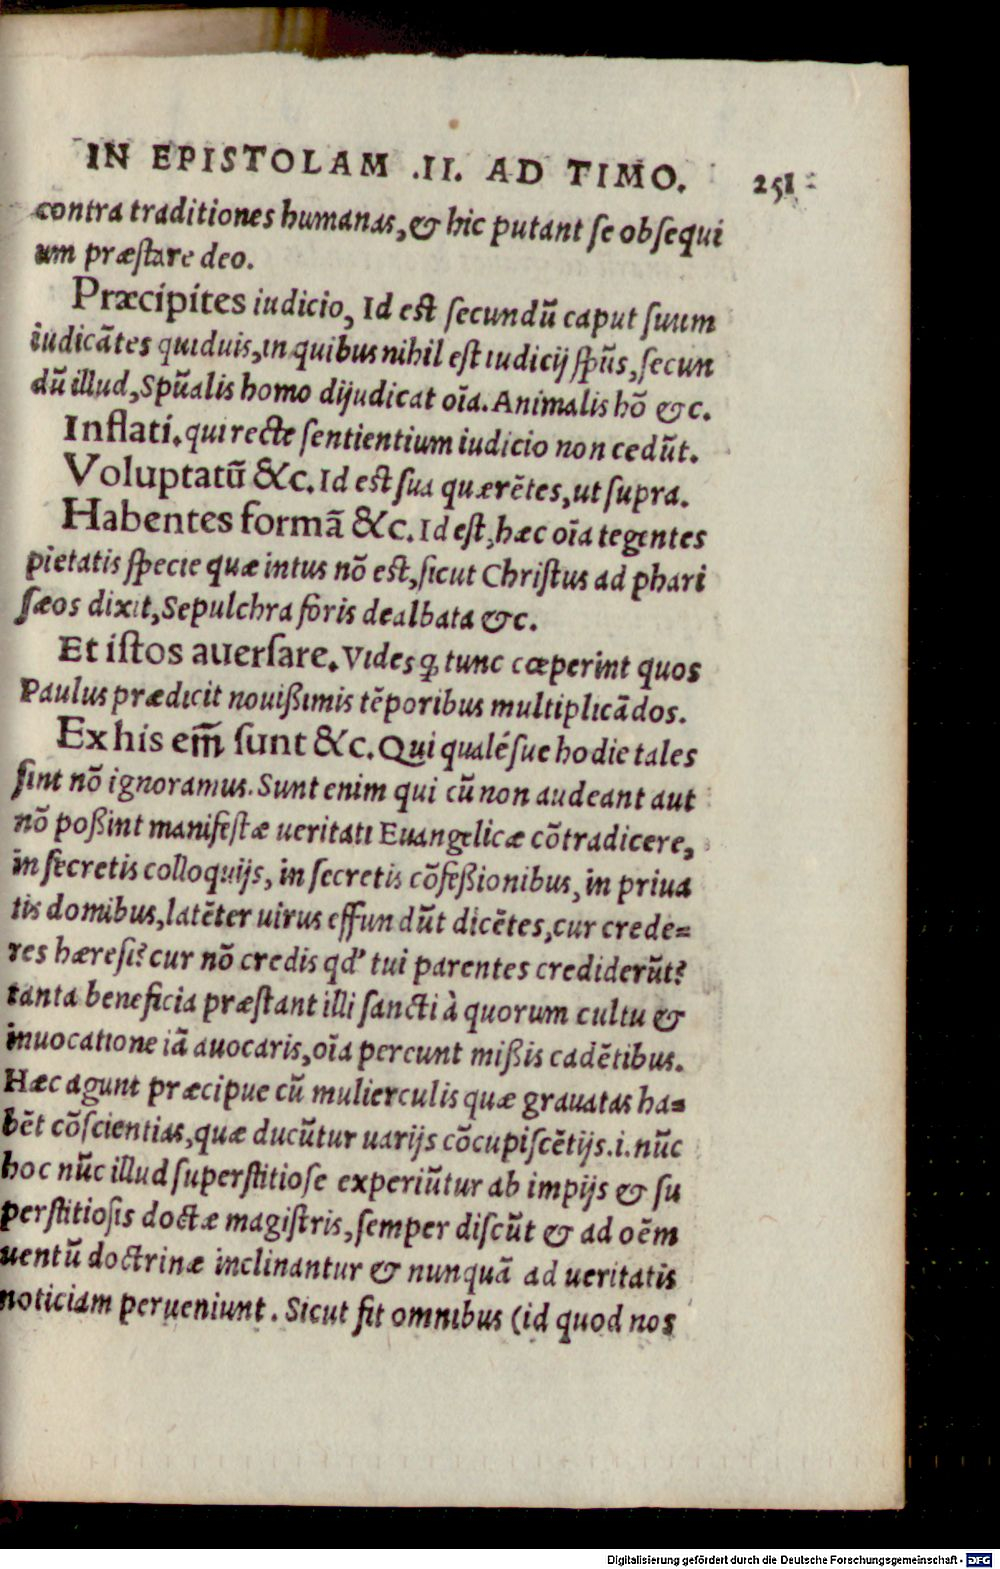 IN EPISTOLAM .II. AD TIMO. 251
contra traditiones humanas, & hic putant se obsequi
um præstare deo.
Præcipites iudicio, Id est secundũ caput suum
iudicãtes quiduis, in quibus nihil est iudicij sp̃us, secun
dũ illud, Spũalis homo dijudicat oĩa. Animalis hõ &c.
Inflati. qui recte sentientium iudicio non cedũt.
Voluptatũ &c. Id est sua quærẽtes, ut supra.
Habentes formã &c. Id est, hæc oĩa tegentes
pietatis specie quæ intus nõ est, sicut Christus ad phari
sæos dixit, Sepulchra foris dealbata &c.
Et istos auersare. Vides ꝙ tunc cœperint quos
Paulus prædicit nouißimis tẽporibus multiplicãdos.
Ex his em̃ sunt &c. Qui qualésue hodie tales
sint nõ ignoramus. Sunt enim qui cũ non audeant aut
nõ poßint manifestæ ueritati Euangelicæ cõtradicere,
in secretis colloquijs, in secretis cõfeßionibus, in priua
tis domibus, latẽter uirus effundũt dicẽtes, cur crede=
res hæresi? cur nõ credis qd' tui parentes crediderũt?
tanta beneficia præstant illi sancti à quorum cultu &
inuocatione iã auocaris, oĩa pereunt mißis cadẽtibus.
Hæc agunt præcipue cũ mulierculis quæ grauatas ha=
bẽt cõscientias, quæ ducũtur uarijs cõcupiscẽtijs .i. nũc
hoc nũc illud superstitiose experiũtur ab impijs & su
perstitiosis doctæ magistris, semper discũt & ad oẽm
uentũ doctrinæ inclinantur & nunquã ad ueritatis
noticiam perueniunt. Sicut fit omnibus (id quod nos
Digitalisierung gefördert durch die Deutsche Forschungsgemeinschaft - DFG